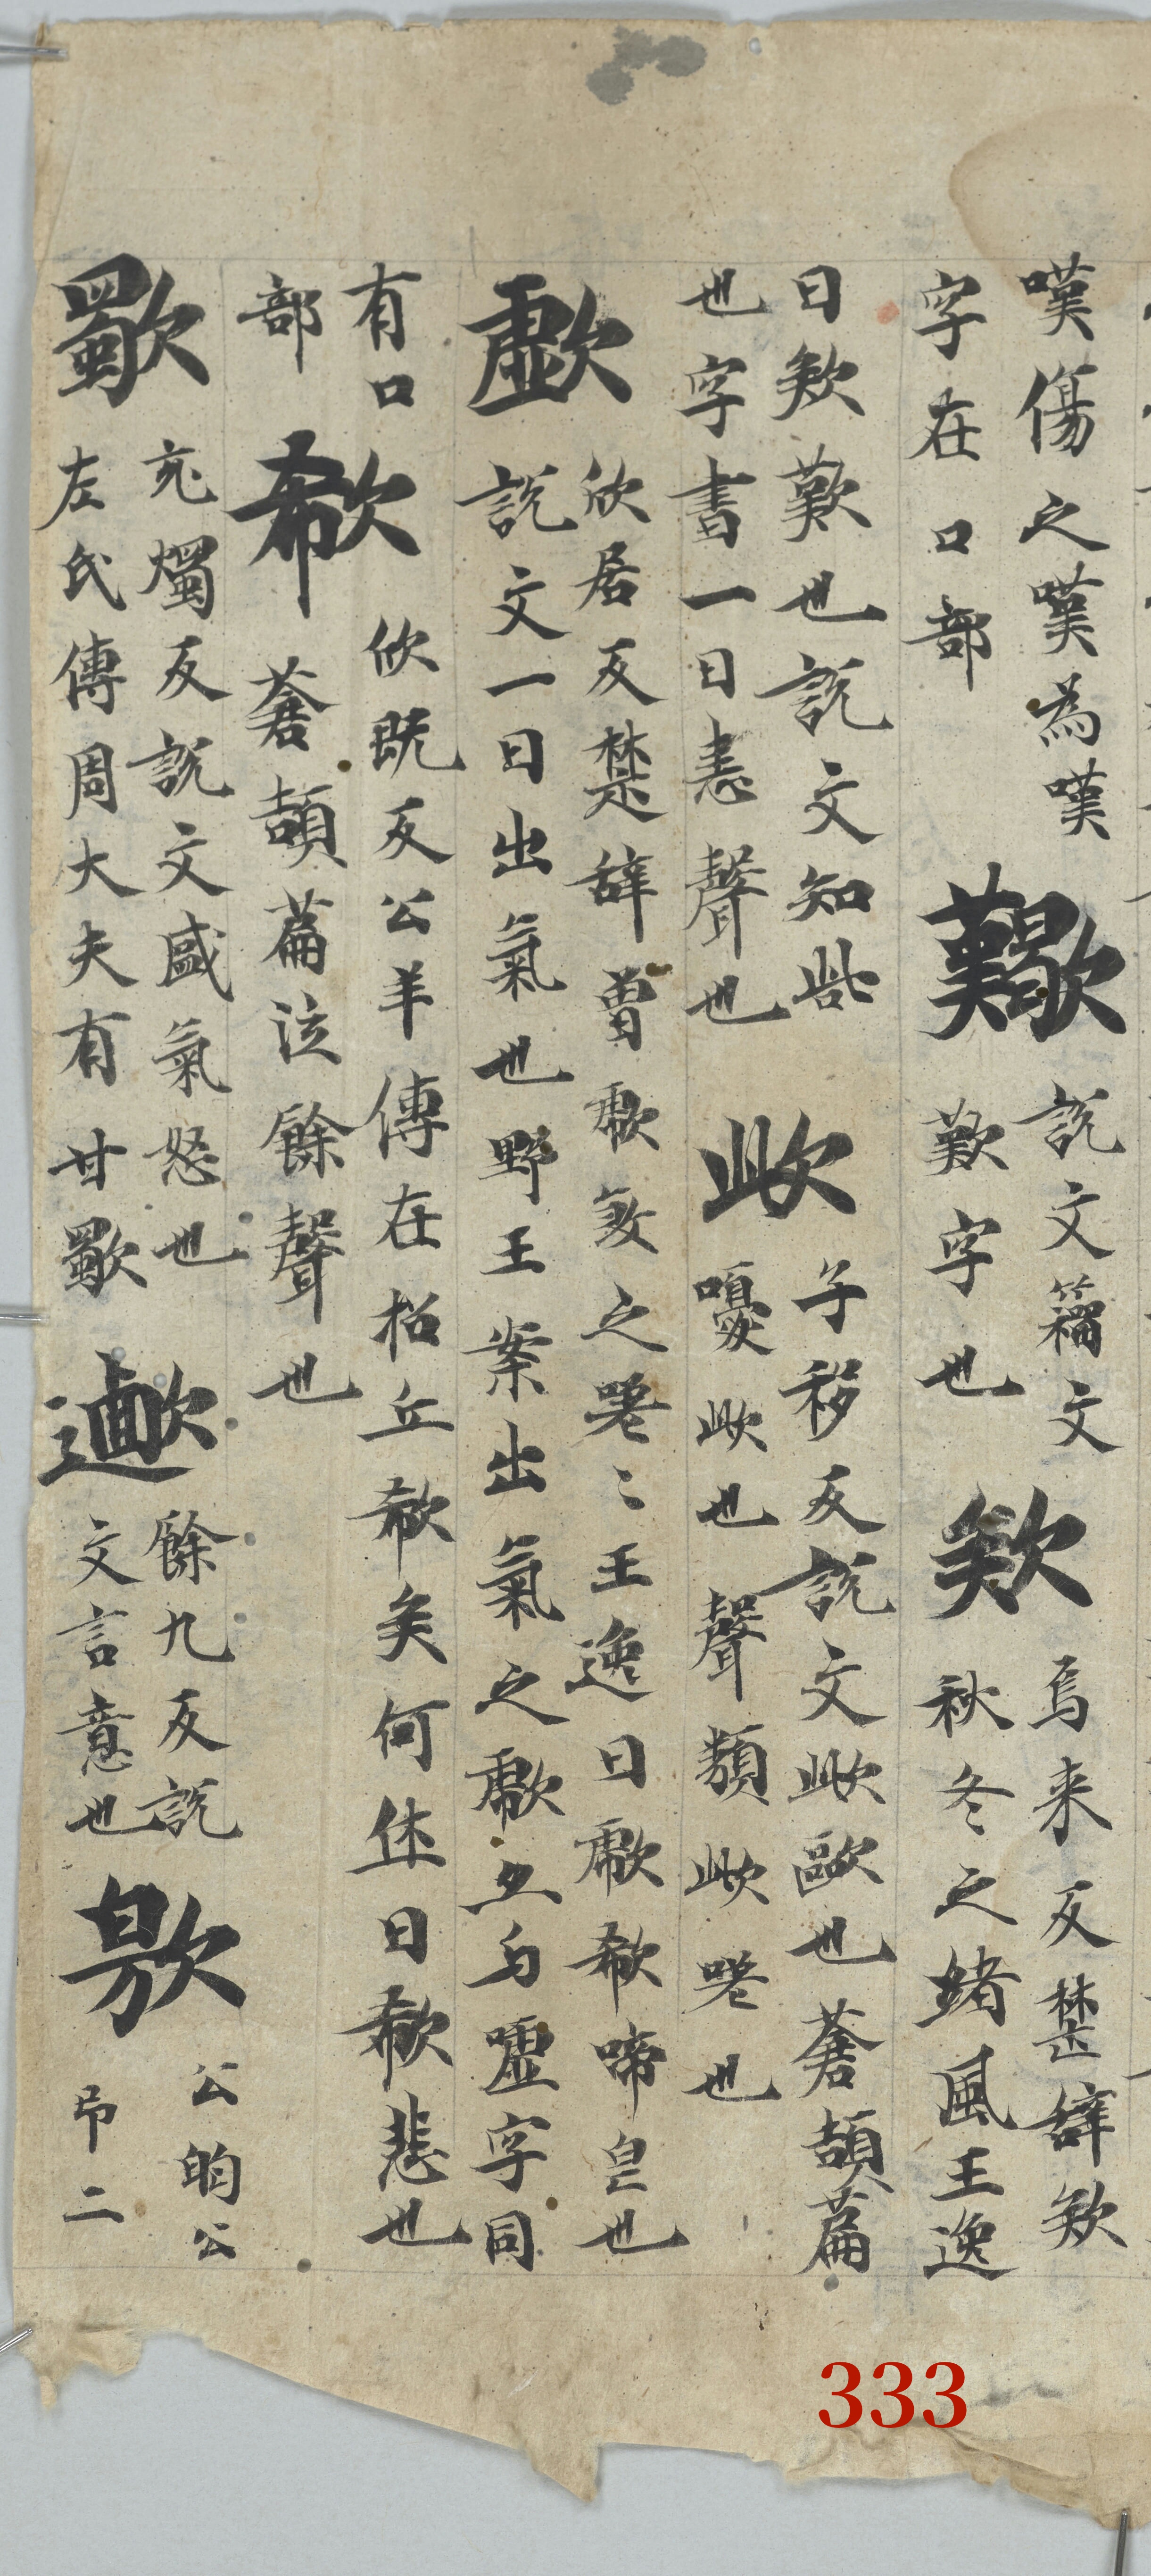 嘆傷之嘆為嘆
字在口部
𣤶
說文籀文
歎字也
欸
焉来反楚辞欸
秋冬之緒風王逸
曰欸歎也說文知此
也字書一曰恚聲也
㰣
子移反說文㰣歐也蒼頡篇
嚘㰣也聲類㰣嗟也
歔
欣居反楚辞曽歔欷之嗟〻王逸曰歔欷啼皃也
說文一曰出氣也野王案出氣之歔亦与嘘字同
有口
部
欷
欣既反公羊傳在招丘欷矣何休曰欷悲也
蒼頡篇泣餘聲也
歜
充燭反說文盛氣怒也
左氏傳周大夫有甘歜
餘九反說
文言意也
㰾
公的公
吊二
333